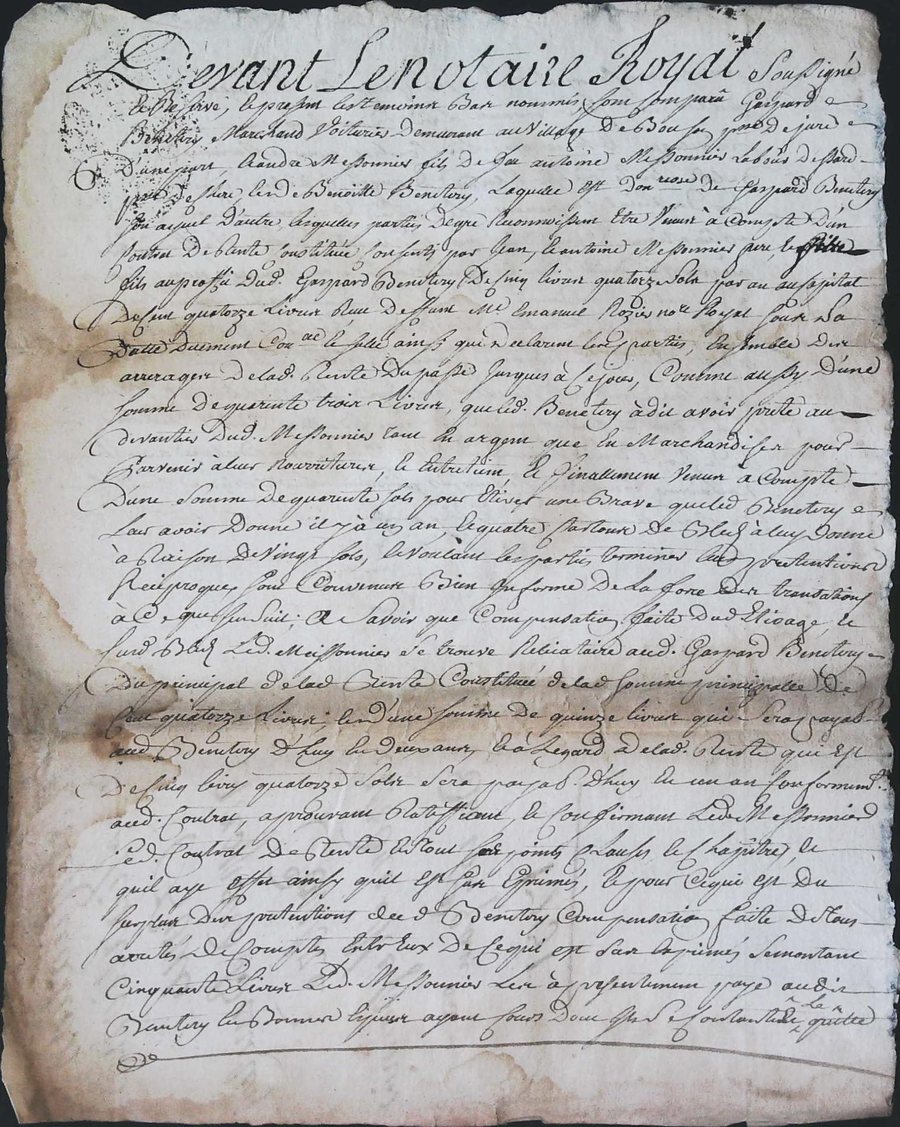 Devant Le notaire Royal Soussigné
reservé, le present les temoins Bas nommés, sont comparu Gaspard
Benetery Marchand Voiturier Demeurant au Village De Bousse, De jure
D'une part, Andre Messonnier fils De feu antoine Messonnier Labour
De Benoitte Benetery, Laquelle est De Gaspard Benetery
son ayeul D'autre, lesquelles parties De gre Reconnoissent Etre Venus à Compte D'un
Contrat De Rente Constituée Consenti par Jean, et antoine Messonnier pere, et
fils au proffit Dud. Gaspard Benetery, De cinq livres quatorze Sols par an au capital
De Cent quatorze Livres Reçu Deffunt Me Emanuel Rozier nore Royal sous La
Datte Duement con le scellé ainsi que Declarent les parties, Ensemble Des
arrerages Delad. Rente Du passé jusques à ce jour, Comme aussy D'une
somme De quarente trois Livres, que led. Benetery à dit avoir preté au
devantier Dud. Messonnier tant En argent que En Marchandises pour
Parvenir à leur nourriture, et Entretien, Et finallement Venus à Compte
D'une Somme De quarente sols pour une que led Benetery
Leur avoir Donné il y à un an, et quatre De Bled à luy Donné
à Raison De vingt sols, et voulant les parties terminer leurs pretentions
Reciproques sont Convenus Bien En forme De la force Des transations
à Ce que s'en Suit; a Scavoir que Compensation faite dud et
surd Bled Led. Meissonnier s'e trouve aud. Gaspard Benetery
Du principal Delad Rente Constituée delad somme principalle De
Cent quatorze Livres; et d'une somme De quinze livres qui sera payable
aud Benetery D'huy En Deux ans, et à L'egard Delad. Rente qui Est
De Cinq livres quatorze Sols sera payable D'huy En un an Conformement
aud. Contrat, aprouvant Ratiffiant, et Confirmant Led. Messonnier
led. Contrat De Rente Et tout ses points Clauses et Chapitres, et
qu'il aye effet ainsy qu'il est par Exprimés, et pour Ce qui est Du
surplus Des pretentions dud Benetery Compensation faite De tous
arretés De Comptes Entr'Eux De Ce qui est sus Exprimés se montant
Cinquante Livres Led. Messonnier Les à presentement payé audit
Benetery En Bonnes Especes ayant Cours Dont il s'e Contante la quitte